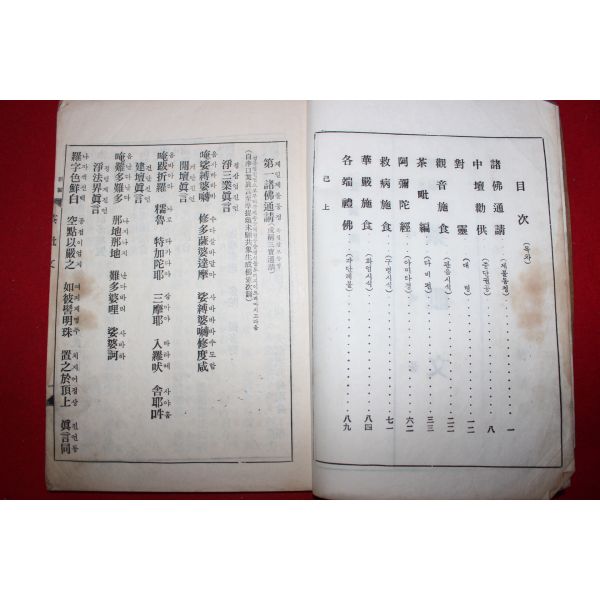 目次 (목차)
諸佛通請 (제불통청) 一
中壇勸供 (중단권공) 八
對靈 (대령) 一二
觀音施食 (관음시식) 二二
茶毗編 (다비편) 三三
阿彌陀經 (아미타경) 六二
救病施食 (구병시식) 七一
華嚴施食 (화엄시식) 八四
各端禮佛 (각단례불) 八九
已上
第一諸佛通請 (或稱三寶通請)
淨三業眞言
唵娑縛婆嚩 修多薩婆達摩 娑縛婆嚩修度咸
開壇眞言
唵跋折囉 糯魯 特加陀耶 三摩耶 入羅吠 舍耶吽
建壇眞言
唵難多難多 那地那地 難多婆哩 娑婆訶
淨法界眞言
羅字色鮮白 空點以嚴之 如彼髻明珠 置之於頂上 眞言同
茶毗文